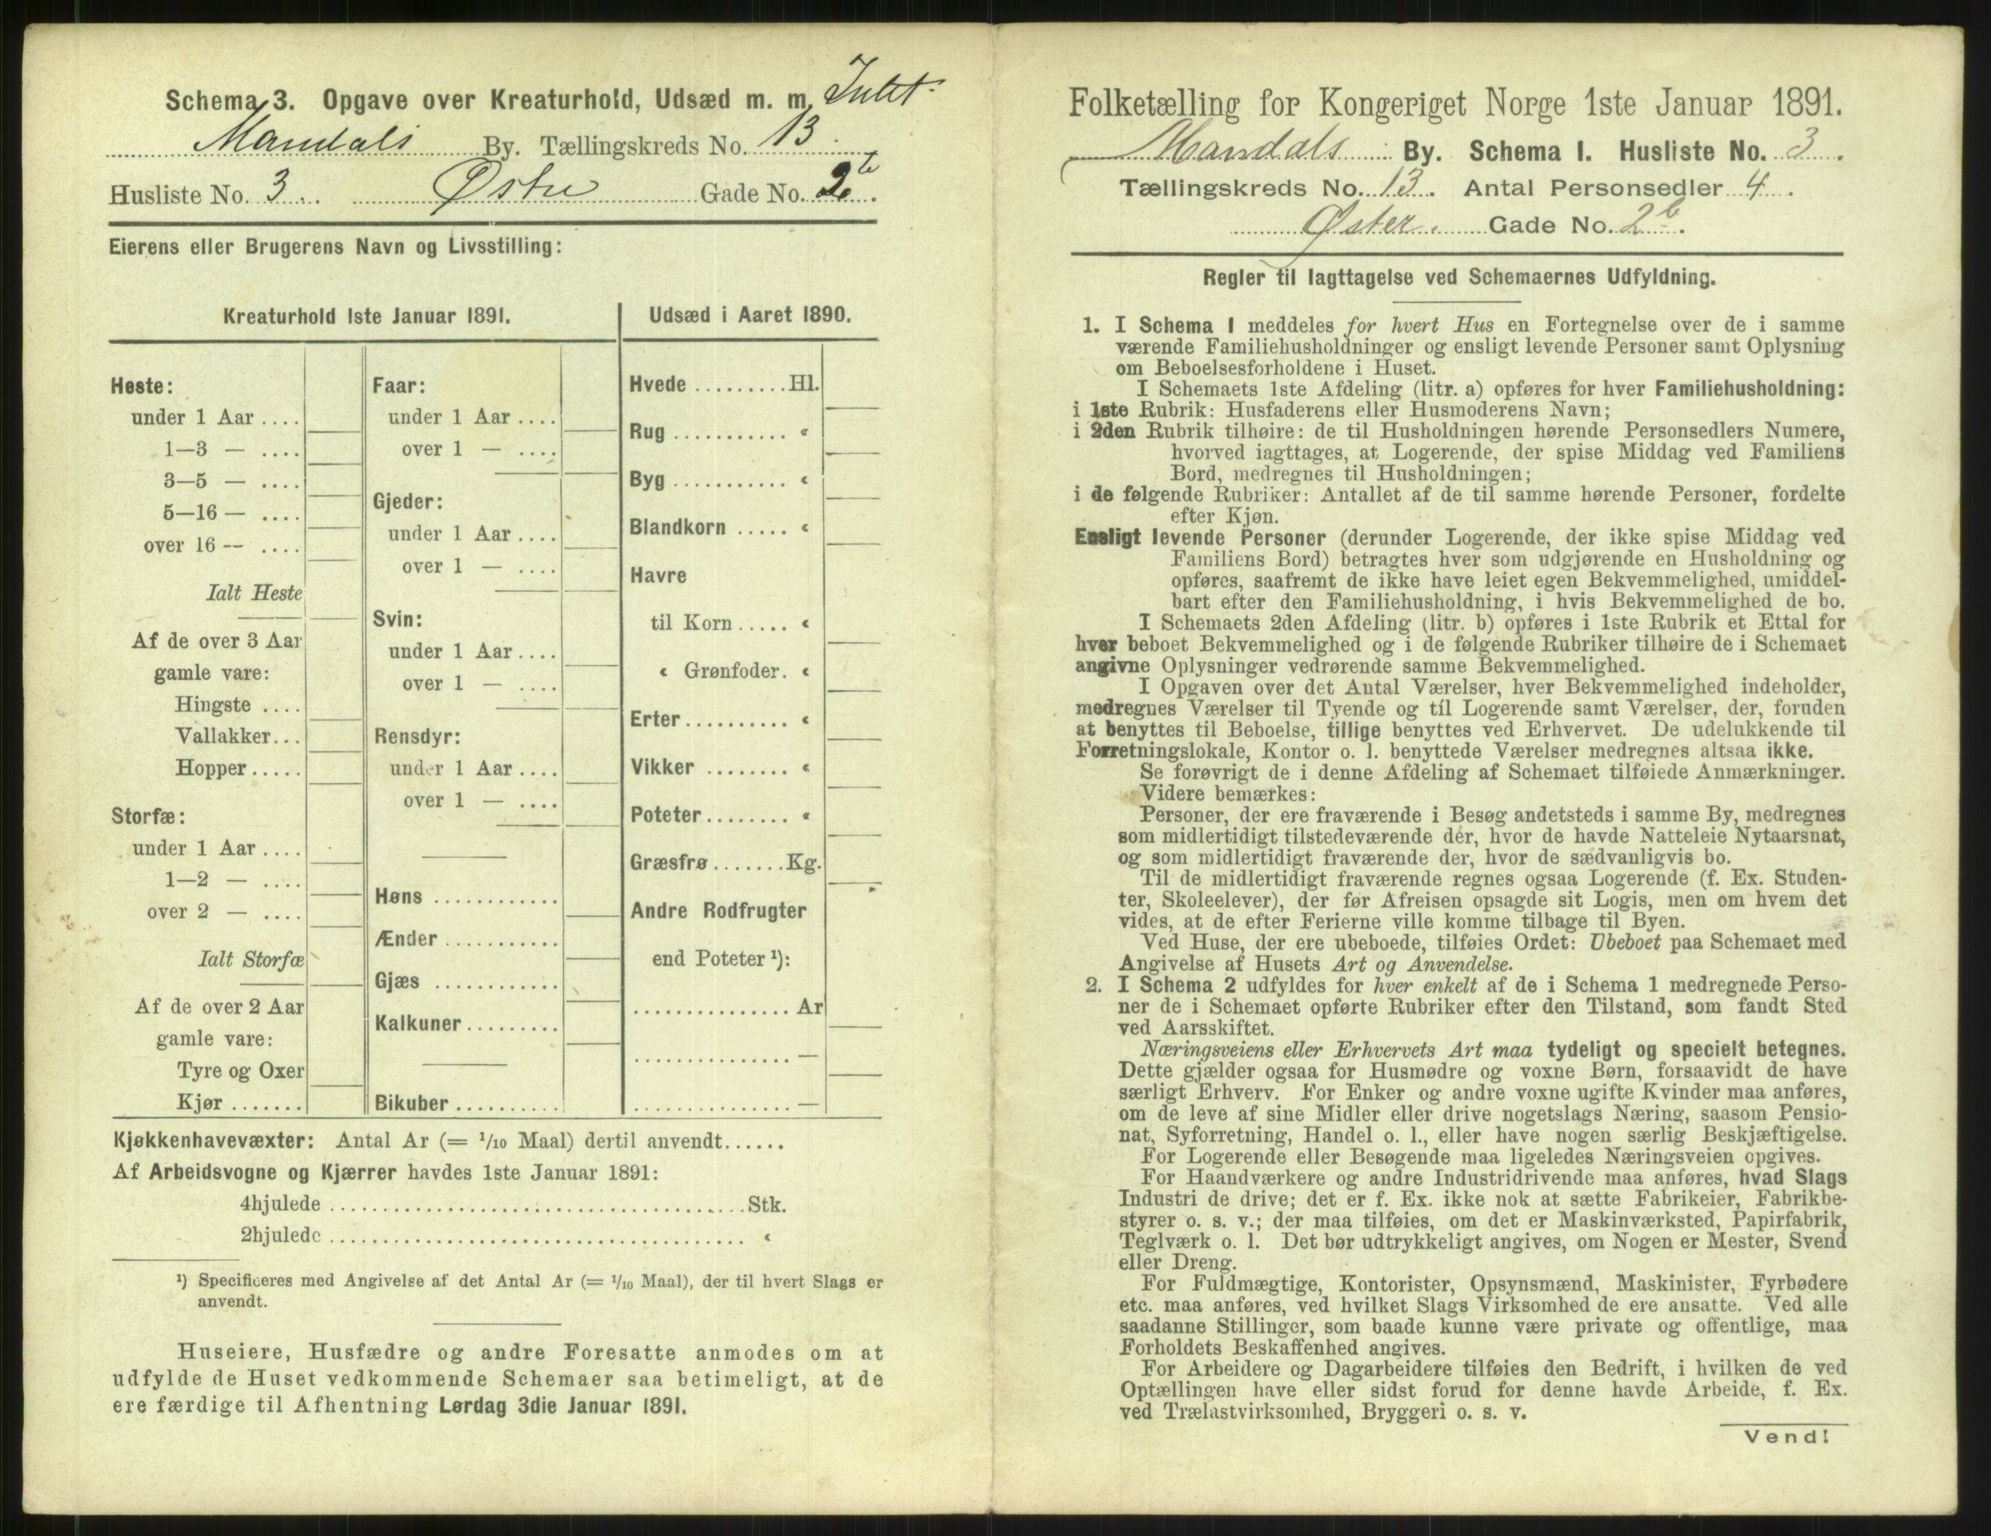 Schema 3. Opgave over Kreaturhold, Udsæd m. m. Intet.
Mandals By. Tællingskreds No. 13.
Husliste No. 3. Østre Gade No. 2b.
Eierens eller Brugerens Navn og Livsstilling:
Kreaturhold 1ste Januar 1891.
Heste:
under 1 Aar ....
1—3 — ....
3—5 — ....
5—16 — ....
over 16 — ....
Ialt Heste
Af de over 3 Aar
gamle vare:
Hingste ....
Vallakker...
Hopper.....
Storfæ:
under 1 Aar ....
1—2 — ....
over 2 — ....
Ialt Storfæ
Af de over 2 Aar
gamle vare:
Tyre og Oxer
Kjør .......
Faar:
under 1 Aar ....
over 1 — ....
Gjeder:
under 1 Aar ....
over 1 — ....
Svin:
under 1 Aar ....
over 1 — ....
Rensdyr:
under 1 Aar ....
over 1 — ....
Høns ............
Ænder ...........
Gjæs ............
Kalkuner.........
Bikuber..........
Udsæd i Aaret 1890.
Hvede .........Hl.
Rug ........... «
Byg ........... «
Blandkorn ..... «
Havre
til Korn ..... «
« Grønfoder. «
Erter.......... «
Vikker ........ «
Poteter........ «
Græsfrø .......Kg.
Andre Rodfrugter
end Poteter ¹):
............... Ar
............... —
............... —
Kjøkkenhavevæxter: Antal Ar (= 1/10 Maal) dertil anvendt......
Af Arbeidsvogne og Kjærrer havdes 1ste Januar 1891:
4hjulede ........................................Stk.
2hjulede ........................................ «
¹) Specificeres med Angivelse af det Antal Ar (= 1/10 Maal), der til hvert Slags er
anvendt.
Huseiere, Husfædre og andre Foresatte anmodes om at
udfylde de Huset vedkommende Schemaer saa betimeligt, at de
ere færdige til Afhentning Lørdag 3die Januar 1891.
Folketælling for Kongeriget Norge 1ste Januar 1891.
Mandals By. Schema I. Husliste No. 3.
Tællingskreds No. 13. Antal Personsedler 4.
Øster. Gade No. 2b.
Regler til Iagttagelse ved Schemaernes Udfyldning.
1. I Schema 1 meddeles for hvert Hus en Fortegnelse over de i samme
værende Familiehusholdninger og ensligt levende Personer samt Oplysning
om Beboelsesforholdene i Huset.
I Schemaets 1ste Afdeling (litr. a) opføres for hver Familiehusholdning:
i 1ste Rubrik: Husfaderens eller Husmoderens Navn;
i 2den Rubrik tilhøire: de til Husholdningen hørende Personsedlers Numere,
hvorved iagttages, at Logerende, der spise Middag ved Familiens
Bord, medregnes til Husholdningen;
i de følgende Rubriker: Antallet af de til samme hørende Personer, fordelte
efter Kjøn.
Ensligt levende Personer (derunder Logerende, der ikke spise Middag ved
Familiens Bord) betragtes hver som udgjørende en Husholdning og
opføres, saafremt de ikke have leiet egen Bekvemmelighed, umiddel-
bart efter den Familiehusholdning, i hvis Bekvemmelighed de bo.
I Schemaets 2den Afdeling (litr. b) opføres i 1ste Rubrik et Ettal for
hver beboet Bekvemmelighed og i de følgende Rubriker tilhøire de i Schemaet
angivne Oplysninger vedrørende samme Bekvemmelighed.
I Opgaven over det Antal Værelser, hver Bekvemmelighed indeholder,
medregnes Værelser til Tyende og til Logerende samt Værelser, der, foruden
at benyttes til Beboelse, tillige benyttes ved Erhvervet. De udelukkende til
Forretningslokale, Kontor o. l. benyttede Værelser medregnes altsaa ikke.
Se forøvrigt de i denne Afdeling af Schemaet tilføiede Anmærkninger.
Videre bemærkes:
Personer, der ere fraværende i Besøg andetsteds i samme By, medregnes
som midlertidigt tilstedeværende dér, hvor de havde Natteleie Nytaarsnat,
og som midlertidigt fraværende der, hvor de sædvanligvis bo.
Til de midlertidigt fraværende regnes ogsaa Logerende (f. Ex. Studen-
ter, Skoleelever), der før Afreisen opsagde sit Logis, men om hvem det
vides, at de efter Ferierne ville komme tilbage til Byen.
Ved Huse, der ere ubeboede, tilføies Ordet: Ubeboet paa Schemaet med
Angivelse af Husets Art og Anvendelse.
2. I Schema 2 udfyldes for hver enkelt af de i Schema 1 medregnede Perso-
ner de i Schemaet opførte Rubriker efter den Tilstand, som fandt Sted
ved Aarsskiftet.
Næringsveiens eller Erhvervets Art maa tydeligt og specielt betegnes.
Dette gjælder ogsaa for Husmødre og voxne Børn, forsaavidt de have
særligt Erhverv. For Enker og andre voxne ugifte Kvinder maa anføres,
om de leve af sine Midler eller drive nogetslags Næring, saasom Pensio-
nat, Syforretning, Handel o. l., eller have nogen særlig Beskjæftigelse.
For Logerende eller Besøgende maa ligeledes Næringsveien opgives.
For Haandværkere og andre Industridrivende maa anføres, hvad Slags
Industri de drive; det er f. Ex. ikke nok at sætte Fabrikeier, Fabrikbe-
styrer o. s. v.; der maa tilføies, om det er Maskinværksted, Papirfabrik,
Teglværk o. l. Det bør udtrykkeligt angives, om Nogen er Mester, Svend
eller Dreng.
For Fuldmægtige, Kontorister, Opsynsmænd, Maskinister, Fyrbødere
etc. maa anføres, ved hvilket Slags Virksomhed de ere ansatte. Ved alle
saadanne Stillinger, som baade kunne være private og offentlige, maa
Forholdets Beskaffenhed angives.
For Arbeidere og Dagarbeidere tilføies den Bedrift, i hvilken de ved
Optællingen have eller sidst forud for denne havde Arbeide, f. Ex.
ved Trælastvirksomhed, Bryggeri o. s. v.
Vend!